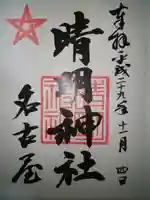 奉拝 平成二十九年十一月四日
晴明神社
名古屋